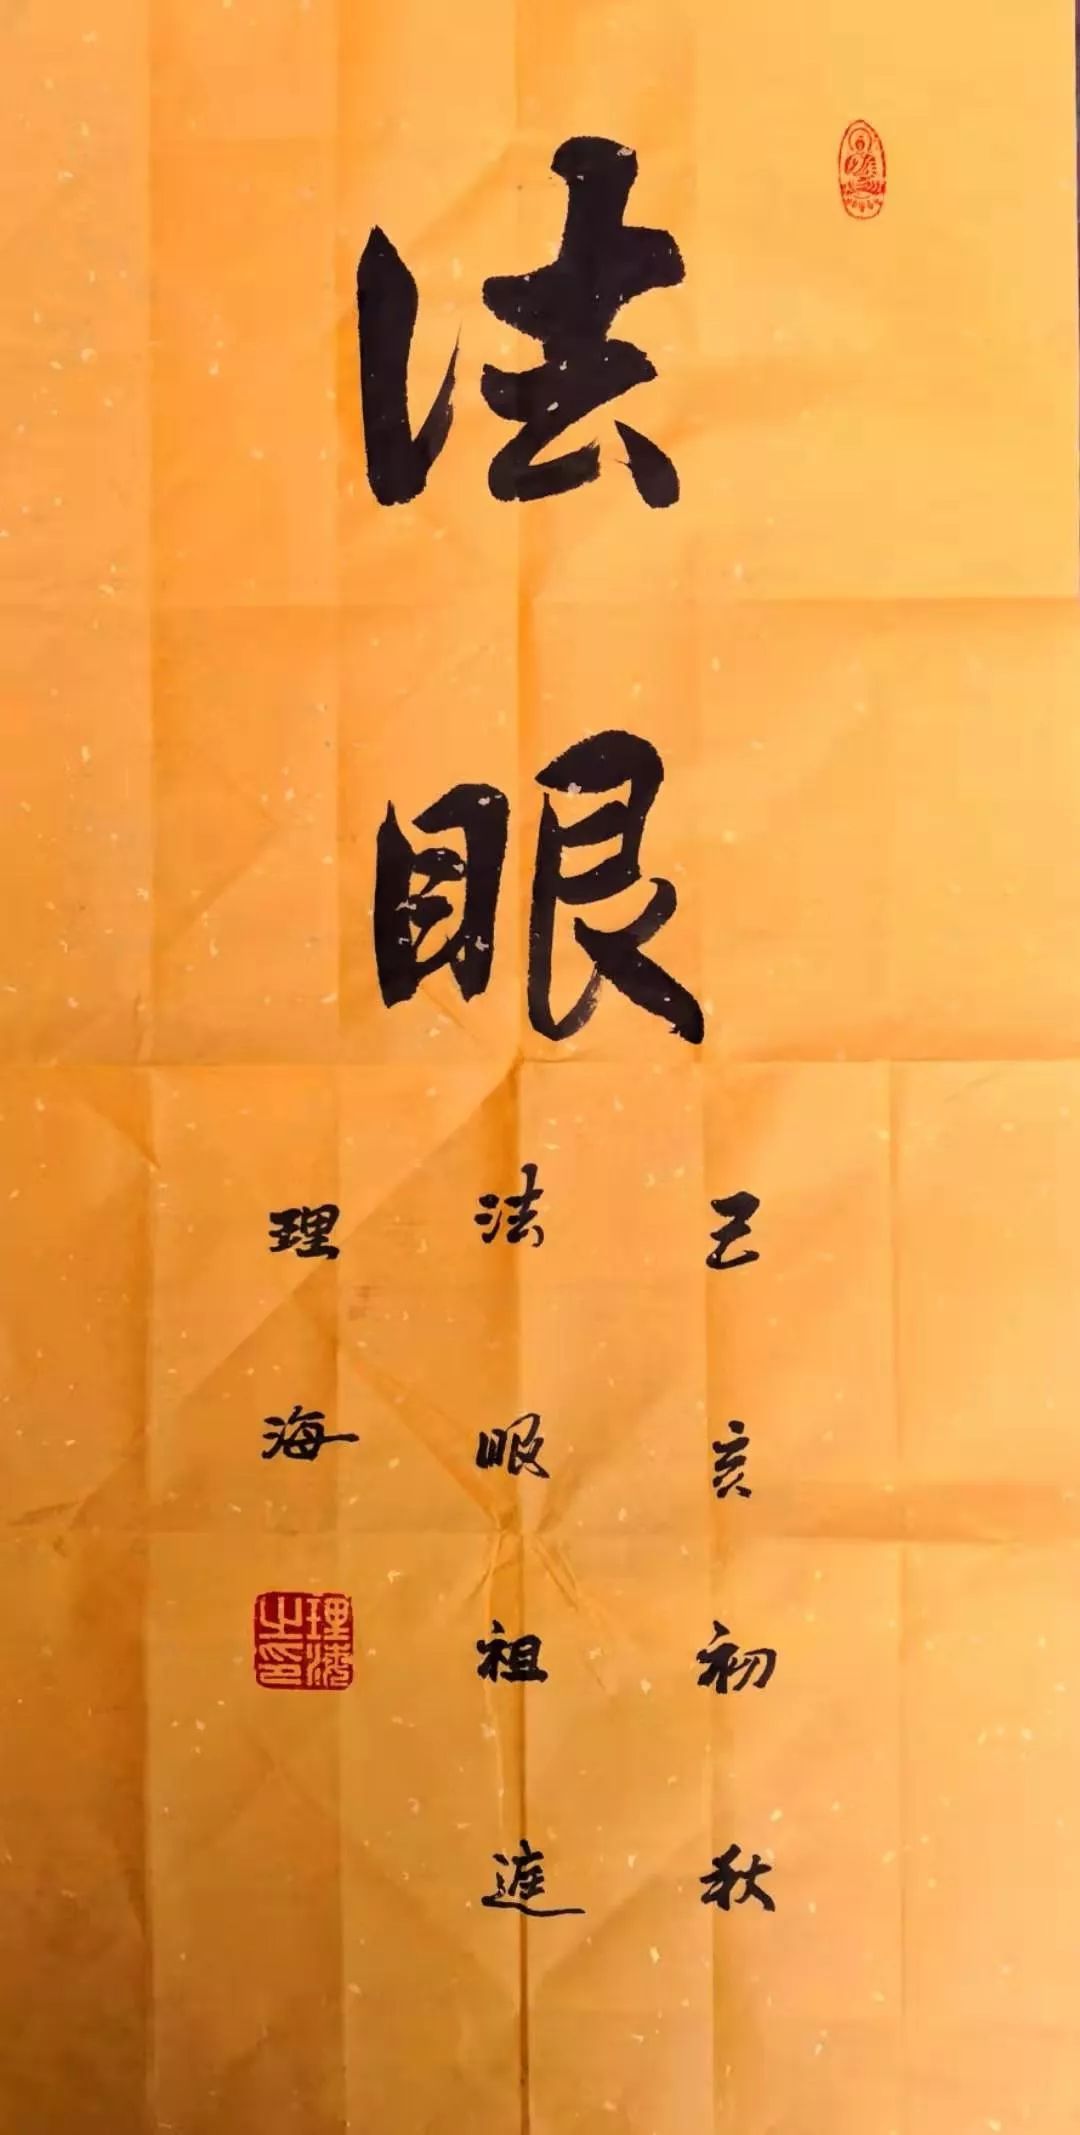 法眼
己亥初秋
法眼祖庭
理海
理海
之印